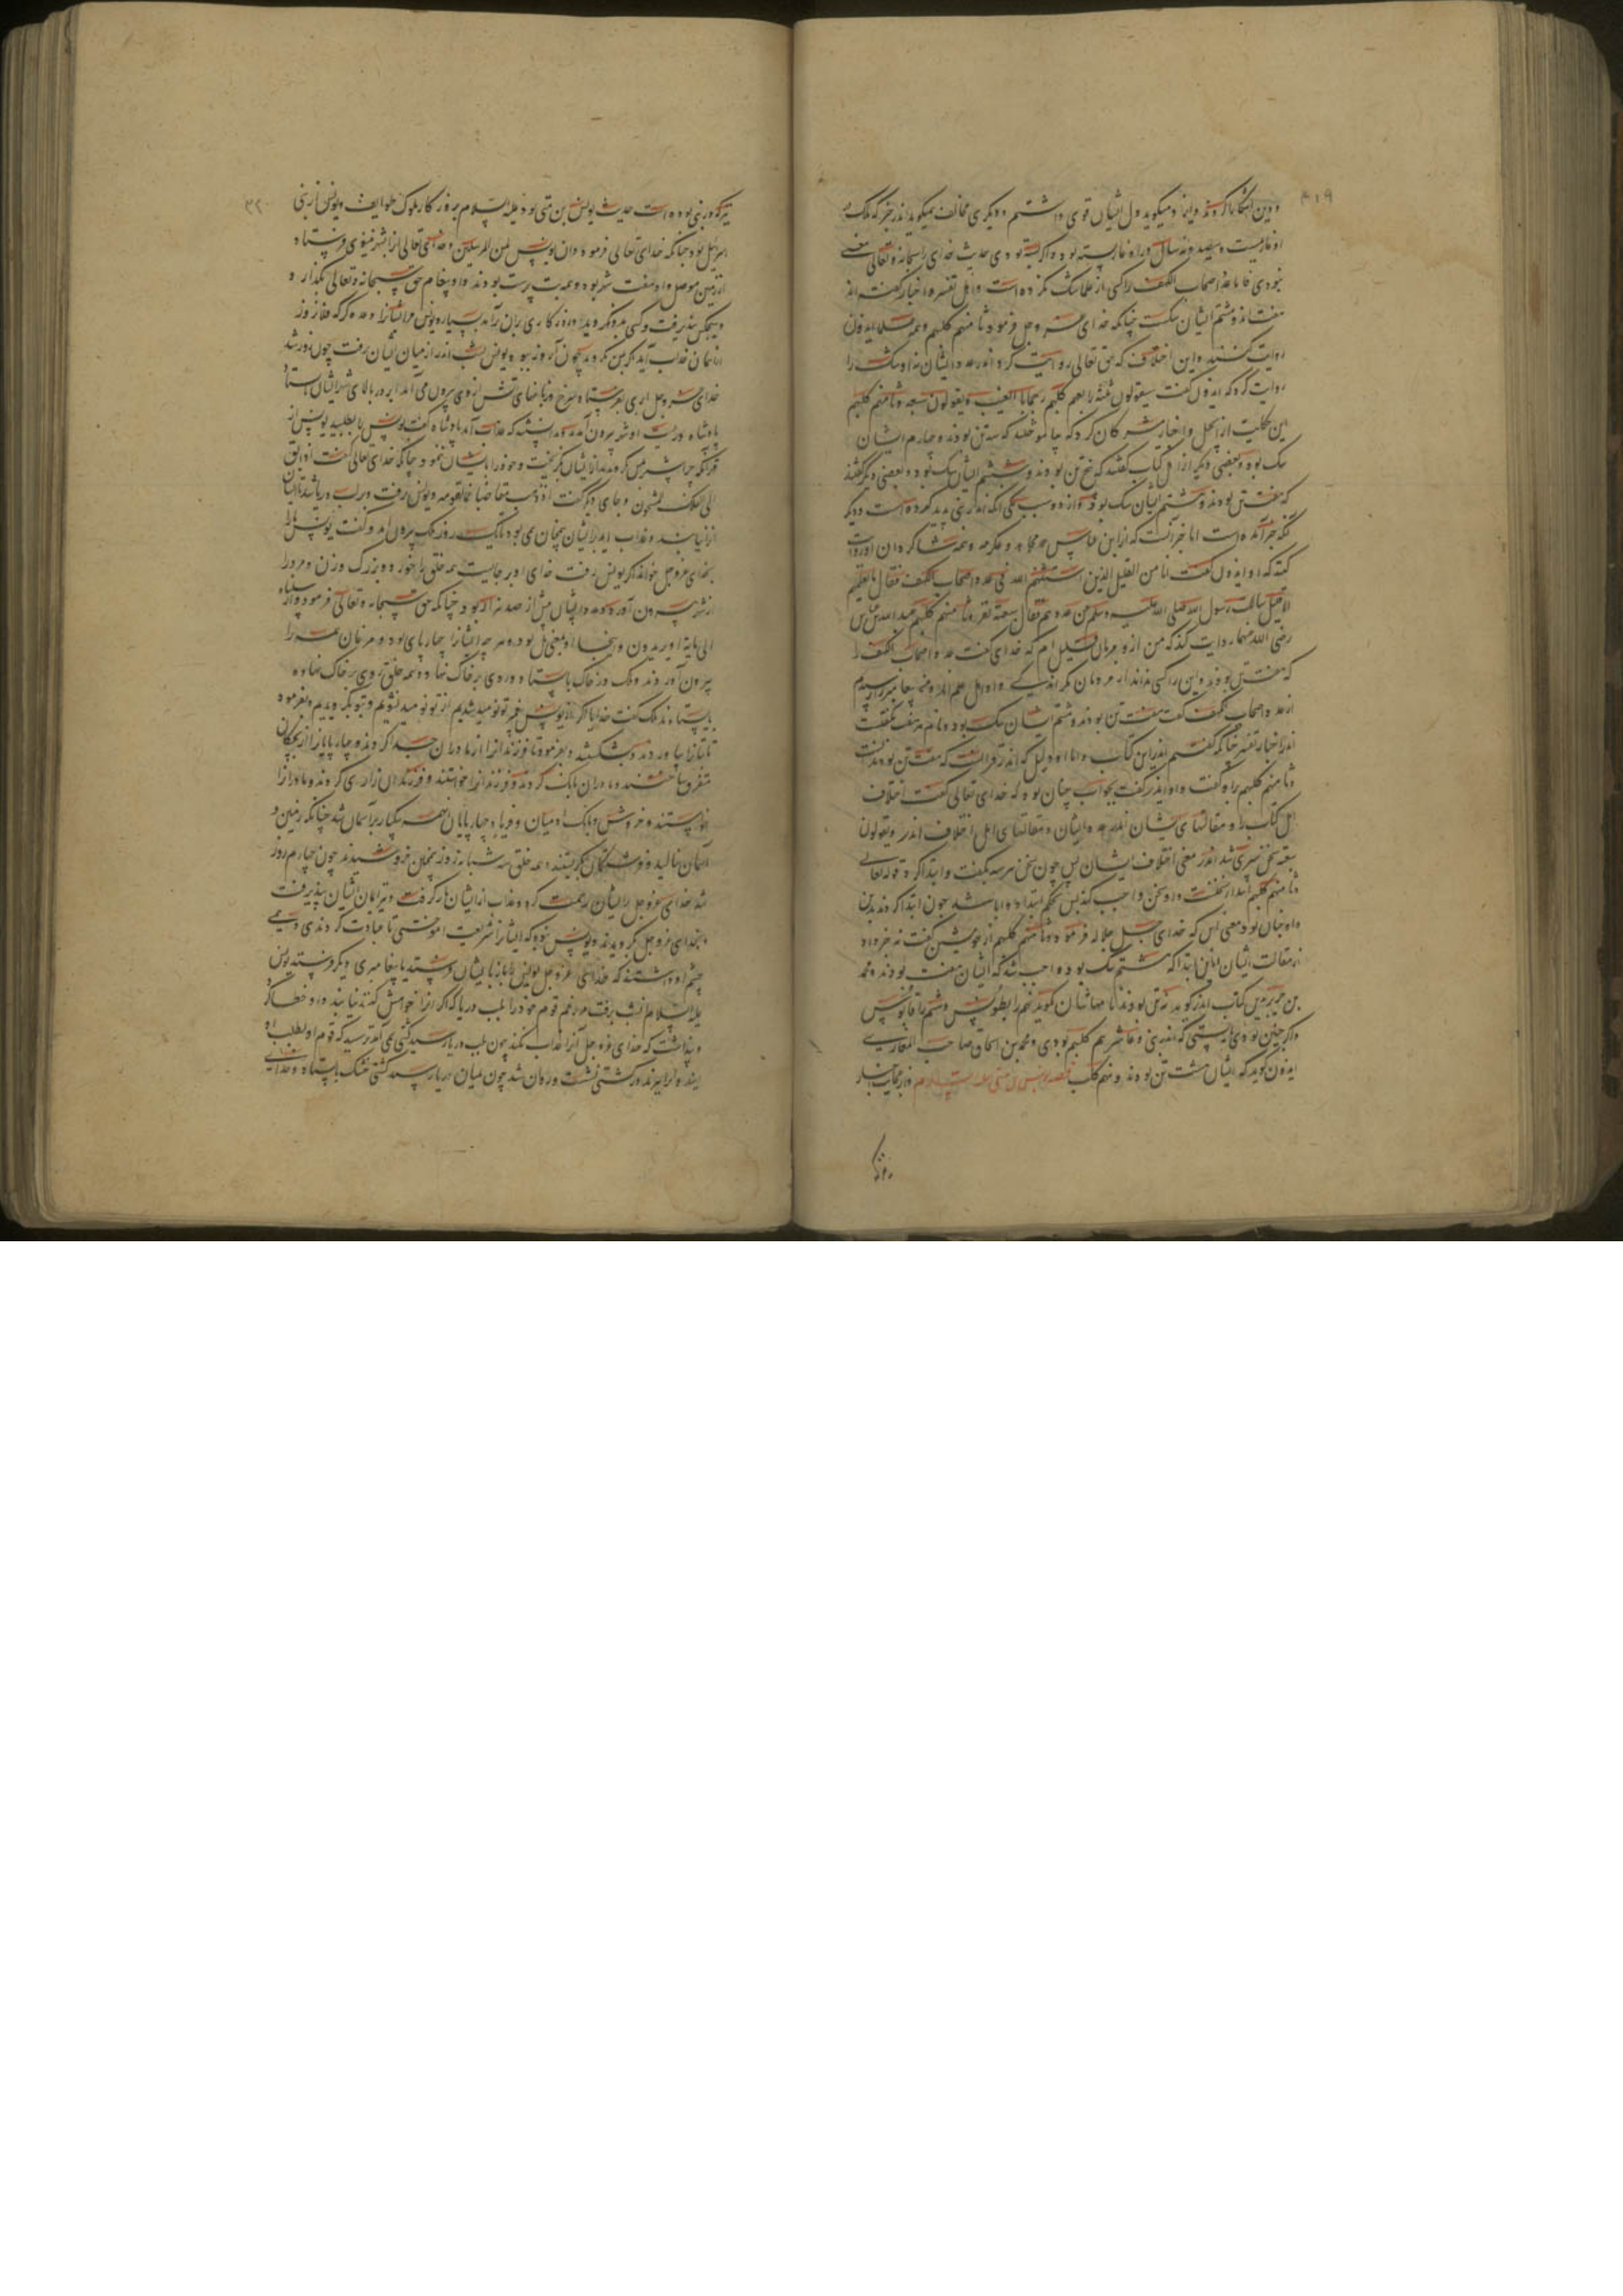 ۳۱۹
و دین آشکارا کردند و ایدون میگوید دل ایشان قوی داشتیم و دیگری مخالف میگوید اندر خبر که ملک
سیصد و نه سال و راه غار بسته بود و اگر بسته بودی حدیث خدای را سبحانه و تعالی معنی
نبودی فاما عدد اصحاب الکهف را کسی از علما شک نکرده است و اهل تفسیر و اخبار گفته اند
هفت اند و هشتم ایشان سگست چنانکه خدای عز وجل فرمود ثامنهم کلبهم و همه علما ایدون
روایت کنند و این اختلاف که حق تعالی روایت کرد اندر عدد ایشان نه او شک را
روایت کرد که ایدون گفت سیقولون ثلثة رابعهم کلبهم رجما بالغیب و یقولون سبعة و ثامنهم کلبهم
این حکایت از انجیل و اخبار مشرکان کرد که سه تن بودند و چهارم ایشان
سگ بود و بعضی دیگر از اهل کتاب گفتند که پنج تن بودند و ششم ایشان سگ بود و بعضی دیگر گفتند
که هفت تن بودند و هشتم ایشان سگ بود و از دو سبب یکی آنکه اندر نبی پدید کرده است و دیگر
آنکه خبر آمده است اما خبر آنست که از ابن عباس و مجاهد و عکرمه و همه شاگردان او روایت
کنند که او ایدون گفت انا من القلیل الذین استثنهم الله فی عدد اصحاب الکهف فقال ما یعلمهم
الا قلیل سالت رسول الله صلی الله علیه وسلم من عددهم فقال سبعة نفر و ثامنهم کلبهم عبد الله بن عباس
رضی الله عنهما روایت کند که من از مردمان قلیل ام که خدای گفت عدد اصحاب الکهف را
که هفت تن بودند و این را کسی نداند از مردمان مگر اندکی و او اهل علم اند و من پیغامبر را پرسیدم
از عدد اصحاب الکهف گفت هفت تن بودند و هشتم ایشان سگ بود و نام هر هفت بگفت
اندر اخبار تفسیر چنانکه گفتیم اندر این کتاب و اما دلیل که اندر قرآنست که هفت تن بودند گفت
و ثامنهم کلبهم را و گفت و او اندر گفت بجواب چنان بود که خدای تعالی گفت اختلاف
اهل کتاب را و مقالتهای ایشان اندر عدد ایشان و مقالتهای اهل اختلاف اندر و یقولون
سبعة سخن سپری شد اندر معنی اختلاف ایشان پس چون سخن سبعه بگفت و ابتدا کرد قوله تعالی
و ثامنهم کلبهم
و او چنان بود معنی این که خدای جل جلاله فرمود و ثامنهم کلبهم از خویشتن گفت نه خبر داد
از مقالت ایشان هشتم سگ بود و واجب شد که ایشان هفت بودند و محمد
بن جریر بدین کتاب اندر گوید نه تن بودند نامهاشان گوید پنجم را بطونس و ششم را قابوس
و اگر چنین بودی بایستی که اندر نبی و عاشرهم کلبهم بودی و محمد بن اسحاق صاحب المغازی
ایدون گوید که ایشان هشت تن بودند و نهم کلب قصه یونس بن متی علیه السلام و از عجایب اخبار
۳۲۰
که در نبی بوده است حدیث یونس بن متی بود علیه السلام بروزگار ملوک طوایف و یونس از بنی
اسرایل بود چنانکه خدای تعالی فرمود و ان یونس لمن المرسلین و خدای تعالی او را بشهر نینوی فرستاد
از زمین موصل و او هفت شهر بود و همه بت پرست بودند و او پیغام حق سبحانه و تعالی بگذارد و
هیچکس نپذیرفت و کسی بدو نگروید و روزگاری بران برآمد بسیار و یونس مر ایشان را وعده کرد که فلان روز
از آسمان عذاب آید اگر بمن نگروید چون آن روز ببود یونس شب اندر از میان ایشان برفت چون روز شد
خدای عز وجل ابری بفرستاد سرخ و زبانهای آتش از وی بیرون می آمد ابر در بالای شهر ایشان باستاد
پادشاه و رعیت او شهر بیرون آمدند و دانستند که عذاب آمد پادشاه گفت یونس را بطلبید یونس از
قهر آنکه چرا بمن نگرویدند از ایشان بگریخت و خود را بایشان ننمود چنانکه خدای تعالی گفت اذ ابق
الی الفلک المشحون و جای دیگر گفت اذ ذهب مغاضبا بقومه و یونس برفت و بر لب دریا شد تا ایشان
او را نیابند و عذاب بر ایشان همچنان می بود تا یک روز ملک بیرون آمد و گفت یونس ما را
بخدای عز وجل خواند اگر یونس رفت خدای او بر جایست همه خلق را خرد و بزرگ و زن و مرد را
از شهر بیرون آورد و عدد ایشان بیش از صد هزار بود چنانکه حق سبحانه و تعالی فرمود و ارسلناه
الی مایة الف او یزیدون و اینجا او بمعنی بل بود و هر چه ایشان را چهارپای بود و مرغان همه را
بیرون آوردند و ملک در خاک باستاد و روی بر خاک نهاد و همه خلق روی بر خاک نهاده
بایستادند ملک گفت خدایا اگر ما از یونس پیغمبر تو نومید شدیم از تو نومید نشویم و بتو بگرویدیم و بفرمود
تا بتان را بیاوردند و بشکستند و بفرمود تا فرزندان را از مادران جدا کردند و چهارپایان را از بچگان
متفرق ساختند و مادران بانگ کردند و فرزندان را خواستند و فرزندان زاری کردند و مادران را
خواستند و خروش و بانگ آدمیان و فریاد چهارپایان همه بیکبار بر آسمان شد چنانکه زمین و
آسمان بنالید و فرشتگان بگریستند و همه خلق سه شبانه روز همچنان خروشیدند چون چهارم روز
شد خدای عز وجل بر ایشان رحمت کرد و عذاب از ایشان باز گرفت و ایمان ایشان بپذیرفت
و بخدای عز وجل بگرویدند و یونس نبود که ایشان را شریعت آموختی تا عبادت کردندی و همی
چشم او داشتند که خدای عز وجل یونس را باز ایشان فرستد یا پیغامبری دیگر فرستد یونس
علیه السلام شب برفت و از غم قوم خود را بلب دریا
و پنداشت که خدای عز وجل آنرا عذاب نکند چون بلب دریا رسید کشتی می آمد ترسید که قوم او بطلب او
آیند و او را ببرند در کشتی نشست و روان شد چون میان دریا رسید کشتی خشک باستاد و خدای